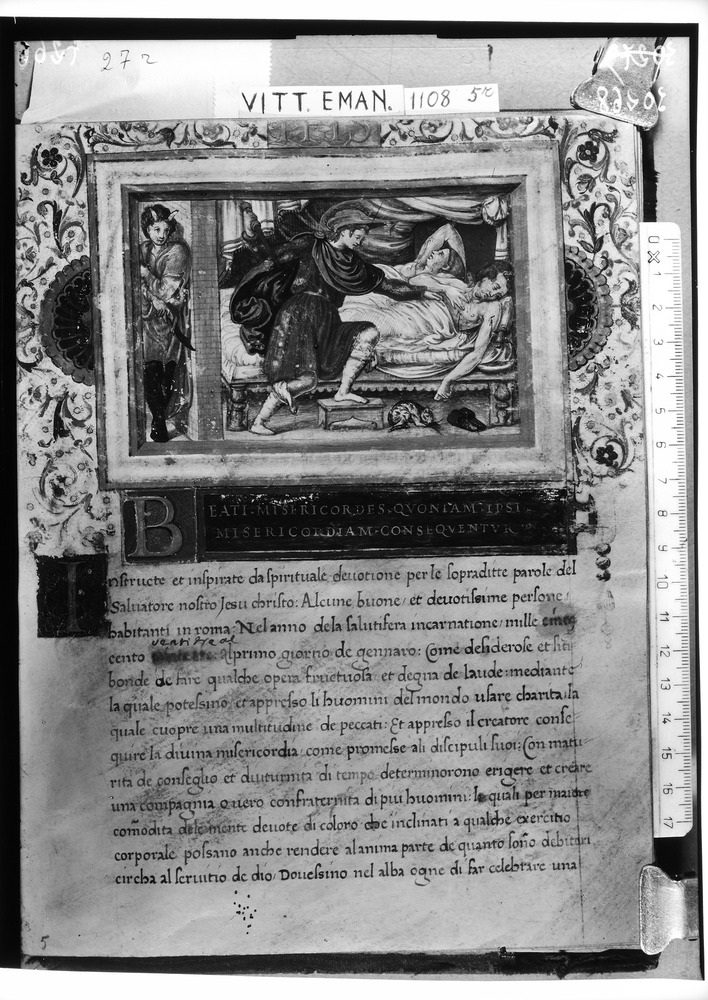 27 r
VITT. EMAN. 1108 5r
30268
BEATI·MISERICORDES·QVONIAM·IPSI·
MISERICORDIAM·CONSEQVENTVR
Instructe et inspirate da spirituale deuotione per le sopraditte parole del
Saluatore nostro Jesu christo: Alcune buone / et deuotissime persone /
habitanti in roma: Nel anno de la salutifera incarnatione / mille cinq
uentitre al
cento primo giorno de gennaro: Come desiderose et siti
bonde de fare qualche opera fructuosa et degna de laude: mediante
la quale potessino / et appresso li huomini del mondo usare charita: la
quale cuopre una multitudine de peccati: Et appresso il creatore conse
quire la diuina misericordia come promesse ali discipuli suoi: Con matu
rita de conseglio et diuturnita di tempo determinorono erigere et creare
una compagnia o uero confraternita di piu huomini: le quali per maiore
comodita dele mente deuote di coloro che inclinati a qualche exercitio
corporale possano anche rendere al anima parte de quanto sono debitori
circha al seruitio de dio / Douessino nel alba ogne di far celebrare una
5
0 1 2 3 4 5 6 7 8 9 10 11 12 13 14 15 16 17